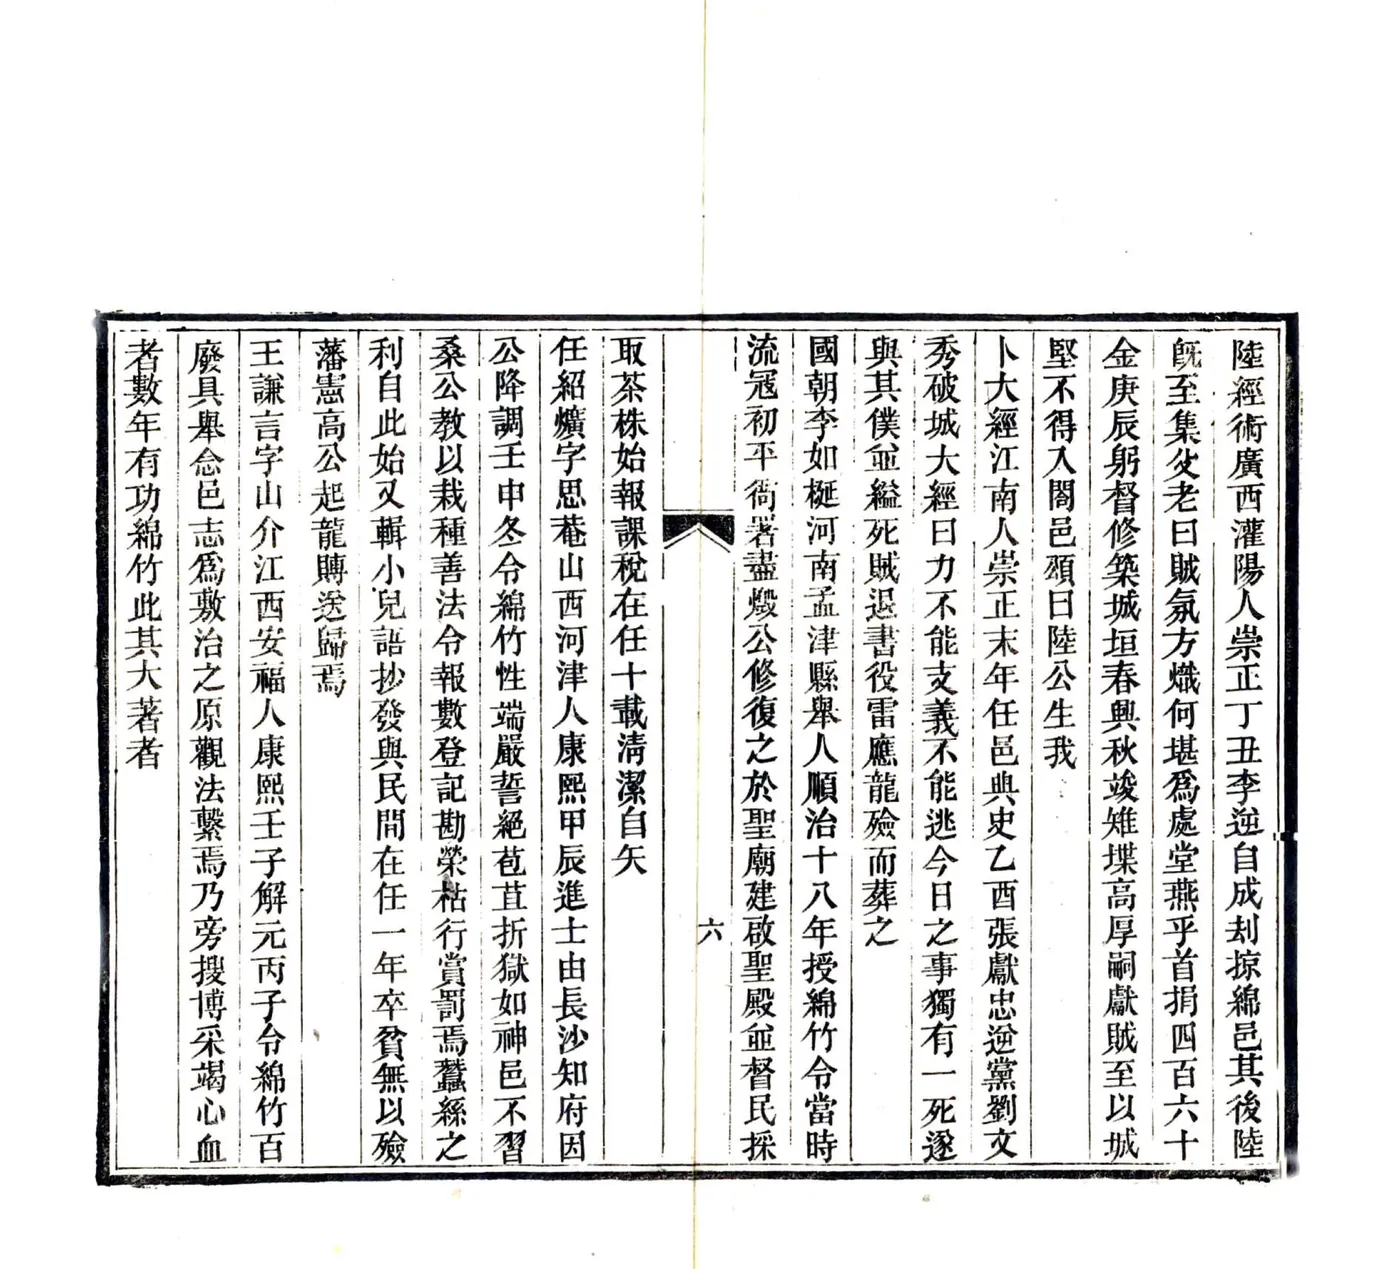 陸經術廣西灌陽人崇正丁丑李逆自成刦掠綿邑其後陸
旣至集父老曰賊氛方熾何堪爲處堂燕乎首捐四百六十
金庚辰躬督修築城垣春興秋竣雉堞高厚嗣獻賊至以城
堅不得入閤邑頌曰陸公生我
卜大經江南人崇正末年任邑典史乙酉張獻忠逆黨劉文
秀破城大經曰力不能支義不能逃今日之事獨有一死遂
與其僕並縊死賊退書役雷應龍殮而葬之
國朝李如梴河南孟津縣舉人順治十八年授綿竹令當時
流冦初平衙署盡燬公修復之於聖廟建啟聖殿並督民採
六
取茶株始報課稅在任十載清潔自矢
任紹爌字思菴山西河津人康熙甲辰進士由長沙知府因
公降調壬申冬令綿竹性端嚴誓絕苞苴折獄如神邑不習
桑公教以栽種善法令報數登記勘榮枯行賞罰焉蠶絲之
利自此始又輯小兒語抄發與民間在任一年卒貧無以殮
藩憲高公起龍賻送歸焉
王謙言字山介江西安福人康熙壬子解元丙子令綿竹百
廢具舉念邑志爲敷治之原觀法繫焉乃旁搜博采竭心血
者數年有功綿竹此其大著者